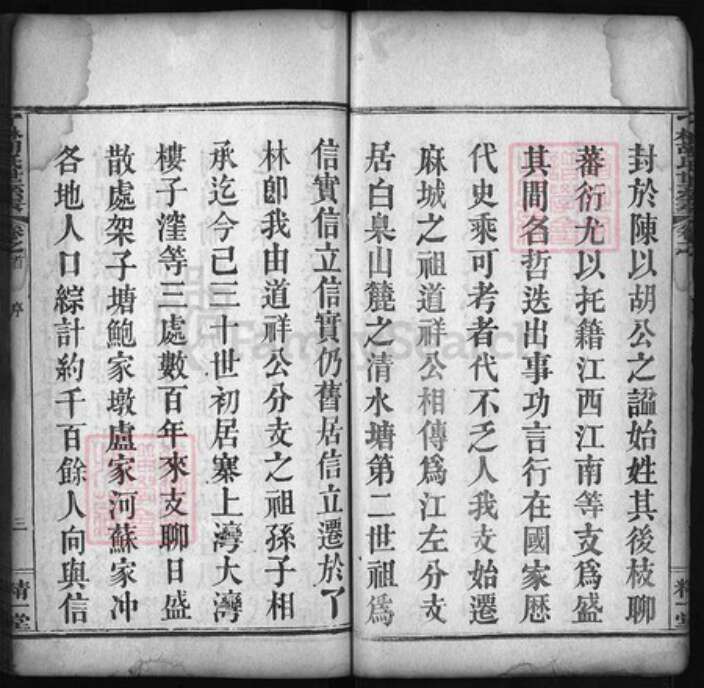 封於陳以胡公之諡始姓其後枝聊
蕃衍尤以托籍江西江南等支爲盛
其間名哲迭出事功言行在國家歷
代史乘可考者代不乏人我支始遷
麻城之祖道祥公相傳爲江左分支
居白臬山麓之清水塘第二世祖爲
信實信立信實仍舊居信立遷於了
林卽我由道祥公分支之祖孫子相
承迄今已三十世初居寨上灣大灣
樓子漥等三處數百年來支聊日盛
散處架子塘鮑家墩盧家河蘇家冲
各地人口綜計約千百餘人向與信
三
精一堂
精一堂
FamilySearch